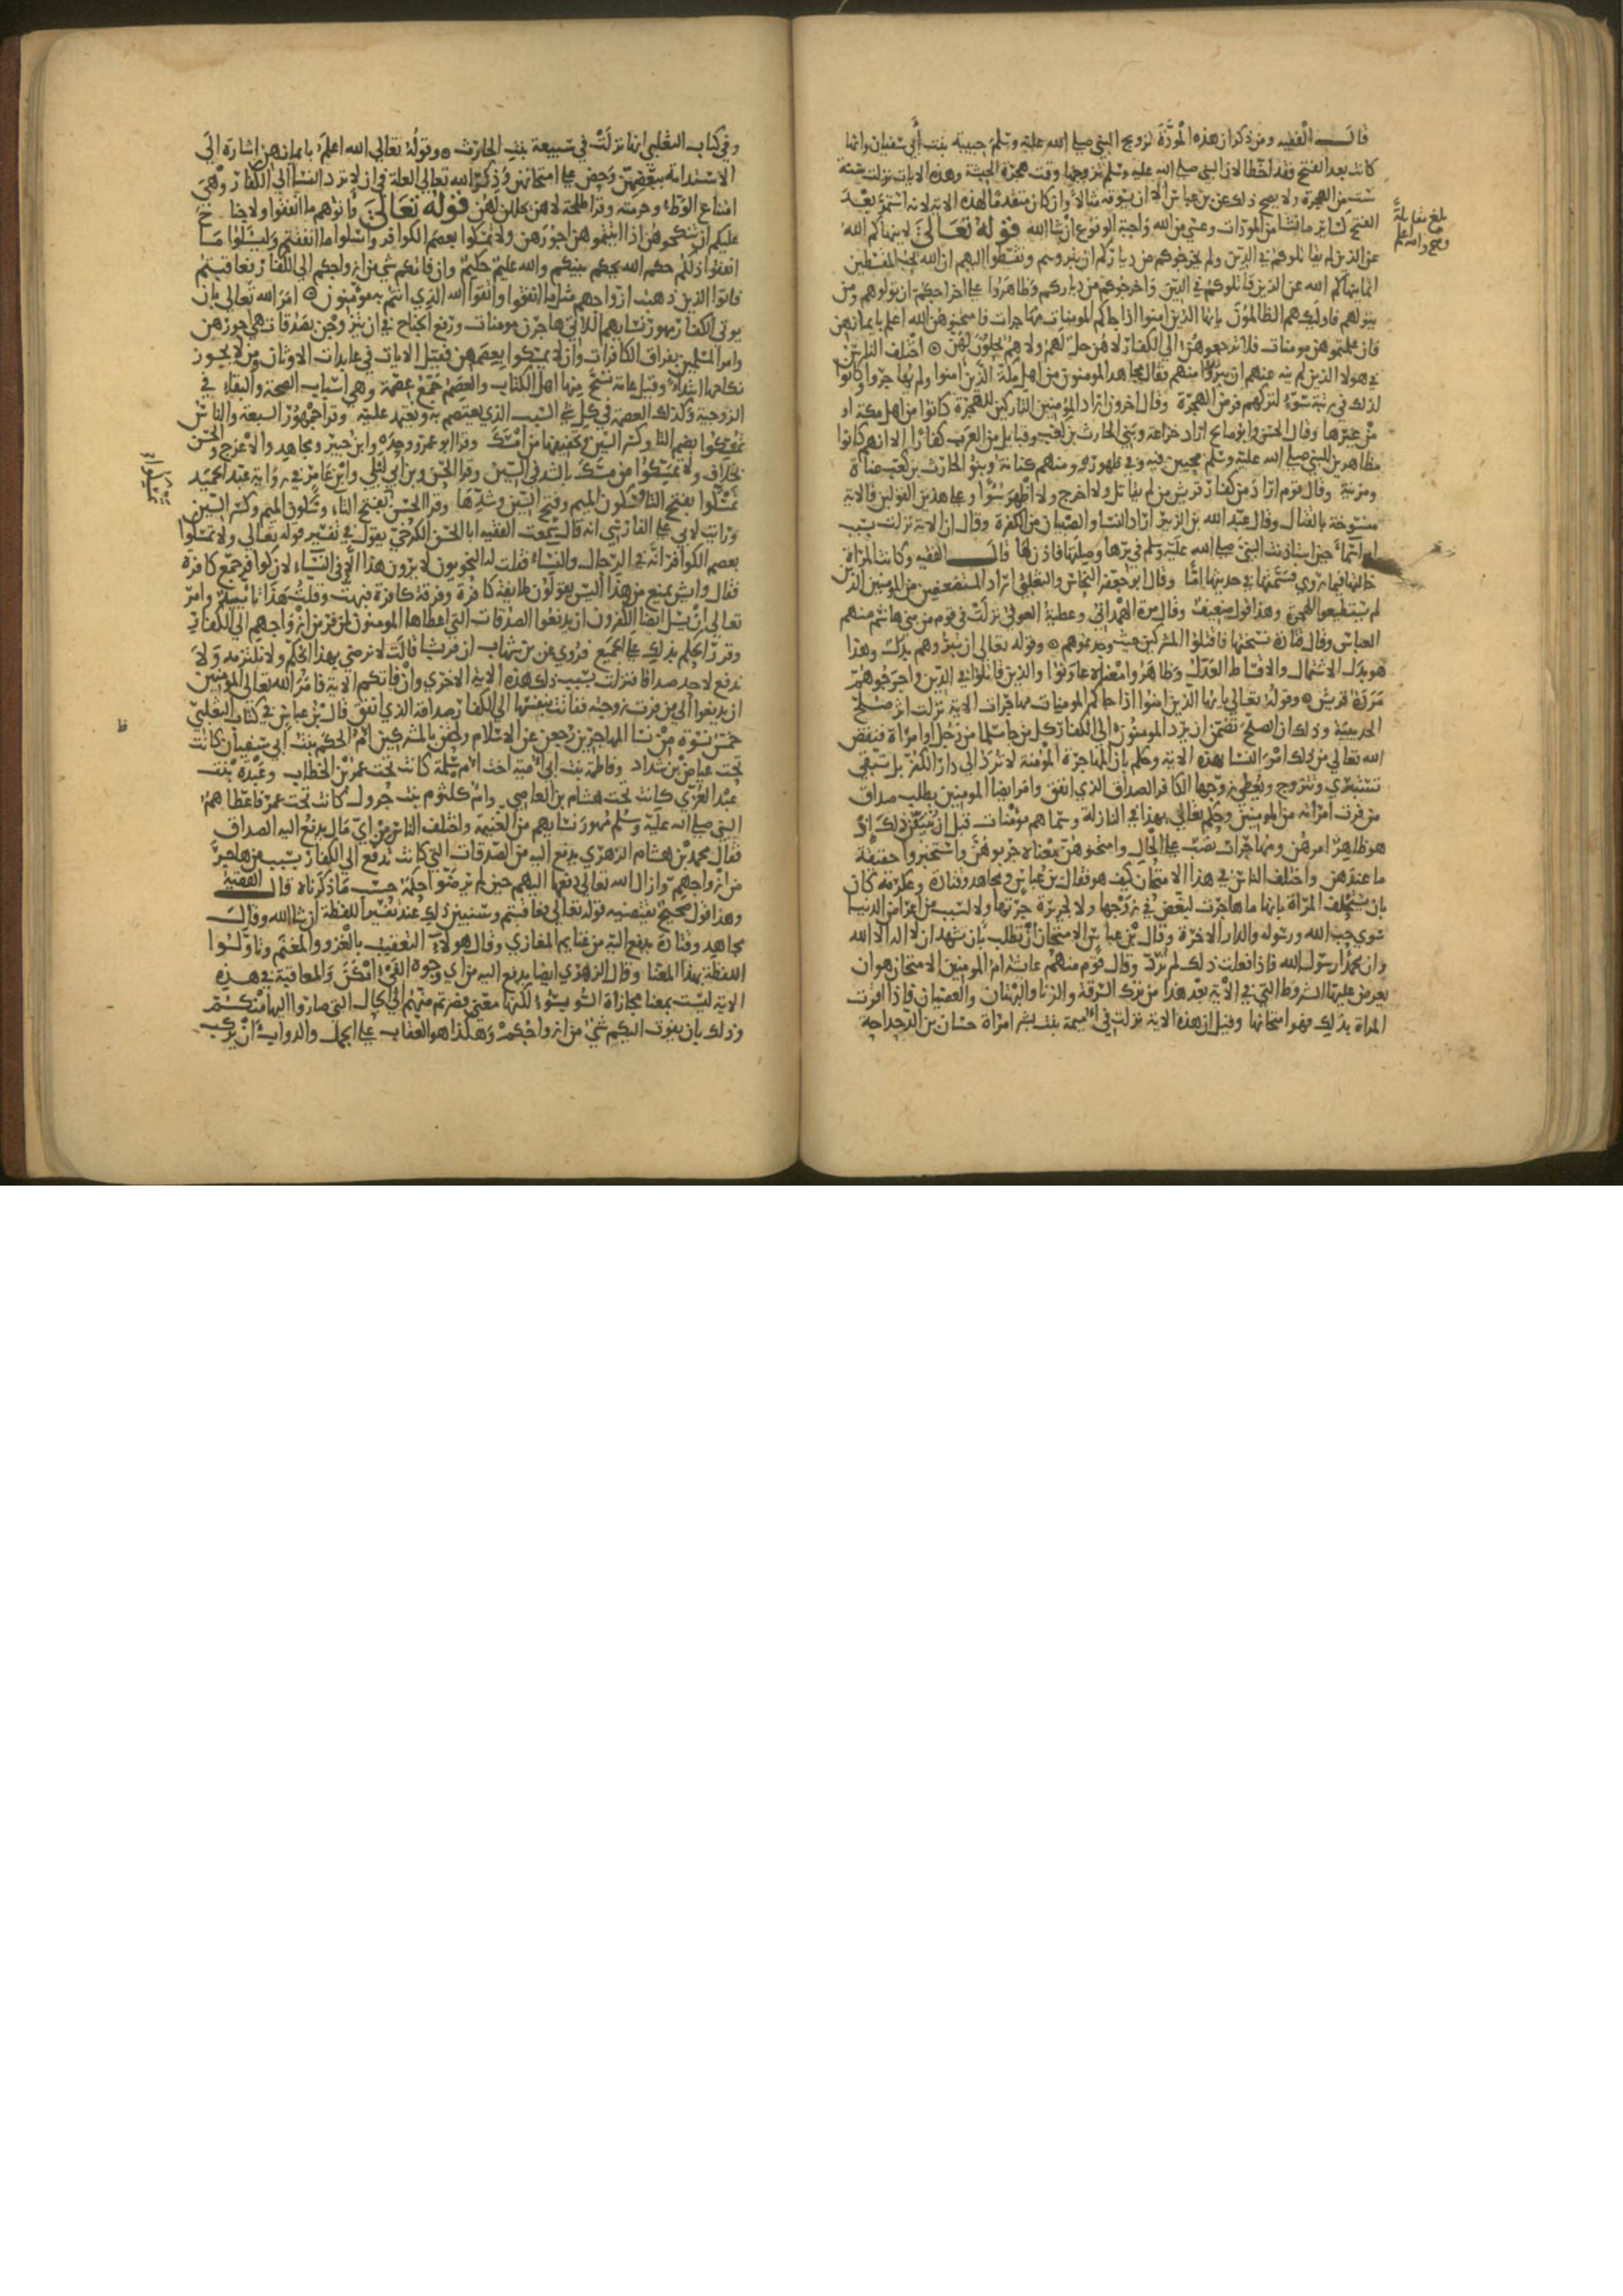 قالـــ الفقيه ومن ذكر ان هذه المودّة تزويج النبي صلى الله عليه وسلم ام حبيبة بنت أبي سفيان وانها
كانت بعد الفتح فقد اخطا لان النبي صلى الله عليه وسلم تزوجها وقت هجرة الحبشة وهذه الايات نزلت سنة
ست من الهجرة ولا يصح ذلك عن بن عباس الا ان يسوقه مثالا وان كان متقدما لهذه الاية لانه استمر بعد
الفتح كساير ما نشا من المودات وعسى من الله واجبة الوقوع ان شا الله قوله تعالى لا ينهاكم الله
عن الذين لم يقاتلوكم في الدين ولم يخرجوكم من دياركم ان تبروهم وتقسطوا اليهم ان الله يحب المقسطين
انما ينهاكم الله عن الذين قاتلوكم في الدين واخرجوكم من دياركم وظاهروا على اخراجكم ان تولوهم ومن
يتولهم فاوليك هم الظالمون يايها الذين امنوا اذا جاكم المومنات مهاجرات فامتحنوهن الله اعلم بايمانهن
فان علمتموهن مومنات فلا ترجعوهن الى الكفار لا هن حل لهم ولا هم يحلون لهن اختلف الناس
في هولا الذين لم ينه عنهم ان يبروا من هم فقال مجاهد المومنون من اهل مكة الذين امنوا ولم يهاجروا وكانوا
لذلك في رتبة سوء لتركهم فرض الهجرة وقال اخرون اراد المومنين التاركين للهجرة كانوا من اهل مكة او
من غيرها وقال الحسن وابو صالح اراد خزاعة وبني الحارث بن كعب وقبايل من العرب كفارا الا انهم كانوا
مظاهرين للنبي صلى الله عليه وسلم محبين فيه وفي ظهوره ومنهم كنانة وبنو الحارث بن كعب بن مناة
ومزينة وقال قوم اراد من كفار قريش من لم يقاتل ولا اخرج ولا اظهر سوا وعلى هذين القولين فالاية
منسوخة بالقتال وقال عبد الله بن الزبير اراد النسا والصبيان من الكفرة وقال ان الاية نزلت بسبب
ام اسما حين استاذنت النبي صلى الله عليه وسلم في برها وصلتها فاذن لها قالـــ الفقيه وكانت المراة
خالتها فيما روي فسمتها في حديثها اما وقال ابو جعفر النحاس والثعلبي اراد المستضعفين من المومنين الذين
لم يستطيعوا الهجرة وهذا قول ضعيف وقال مرة الهمداني وعطية العوفي نزلت في قوم من بني هاشم منهم
العباس وقال قتادة نسختها فاقتلوا المشركين حيث وجدتموهم وقوله تعالى ان تبروهم بدل وهذا
هو بدل الاشتمال والاقساط العدل وظاهروا معناه عاونوا والذين قاتلوا في الدين واخرجوهم
مردة قريش وقوله تعالى يايها الذين امنوا اذا جاكم المومنات مهاجرات الاية نزلت اثر صلح
الحديبية وذلك ان الصلح تضمن ان يرد المومنون الى الكفار كل من جا مسلما من رجل او امراة فنقض
الله تعالى من ذلك امر النسا بهذه الاية وحكم بان المهاجرة المومنة لا ترد الى دار الكفر بل تبقى
تستبري وتتزوج ويعطى زوجها الكافر الصداق الذي انفق وامر ايضا المومنين بطلب صداق
من فرت امراته من المومنين وحكم تعالى بهذا في النازلة وسماهم مومنات قبل ان يتيقن ذلك اذ
هو ظاهر امرهن ومهاجرات نصب على الحال وامتحنوهن معناه جربوهن واستخبروا حقيقة
ما عندهن واختلف الناس في هذا الامتحان كيف هو فقال بن عباس ومجاهد وقتادة وعكرمة كان
بان تستحلف المراة بانها ما هاجرت لبغض في زوجها ولا لجريرة جرتها ولا لسبب من اعراض الدنيا
سوى حب الله ورسوله والدار الاخرة وقال بن عباس الامتحان ان تطلب بان تشهد ان لا اله الا الله
وان محمدا رسول الله فاذا فعلت ذلك لم ترد وقال قوم منهم عايشة ام المومنين الامتحان هو ان
يعرض عليها الشروط التي في الاية بعد هذا من ترك السرقة والزنا والبهتان والعصيان فاذا اقرت
المراة بذلك فهو امتحانها وقيل ان هذه الاية نزلت في اميمة بنت بشر امراة حسان بن الدحداحة
بلغ مقابلة
وصح والله اعلم
وفي كتاب الثعلبي انها نزلت في سبيعة بنت الحارث وقوله تعالى الله اعلم بايمانهن اشارة الى
الاسترابة ببعضهن وحض على امتحانهن وذكر الله تعالى العلة في ان لا ترد النسا الى الكفار وهي
امتناع الوطء وحرمته وقرا طلحة لا هن يحللن لهن قوله تعالى واتوهم ما انفقوا ولا جناح
عليكم ان تنكحوهن اذا اتيتموهن اجورهن ولا تمسكوا بعصم الكوافر واسلوا ما انفقتم وليسلوا ما
انفقوا ذلكم حكم الله يحكم بينكم والله عليم حكيم وان فاتكم شي من ازواجكم الى الكفار فعاقبتم
فاتوا الذين ذهبت ازواجهم مثل ما انفقوا واتقوا الله الذي انتم به مومنون امر الله تعالى بان
يوتى الكفار مهور نسايهم اللاتي هاجرن مومنات ورفع الجناح في ان يتزوجن بصدقات هي اجورهن
وامر المسلمين بفراق الكافرات وان لا يمسكوا بعصمهن فقيل الايات في عابدات الاوثان ومن لا يجوز
نكاحها ابتداء وقيل عامة نسخ منها اهل الكتاب والعصم جمع عصمة وهي اسباب الصحة والبقاء في
الزوجية وكذلك العصمة في كل شي السبب الذي يعتصم به ويعتمد عليه وقرا جمهور السبعة والناس
تمسكوا بضم التا وكسر السين وتخفيفها من امسك وقرا ابو عمرو وحده وابن جبير ومجاهد والاعرج والحسن
بخلاف ولا تمسكوا من مسّك بالشد في السين وقرا الحسن وبن ابي ليلى وابن عامر في رواية عبد الحميد
تمسّكوا بفتح التا والميم وفتح السين وشدها وقرا الحسن بفتح التاء وسكون الميم وكسر السين
ورايت لابي علي الفارسي انه قال سمعت الفقيه ابا الحسن الكرخي يقول في تفسير قوله تعالى ولا تمسكوا
بعصم الكوافر انه في الرجال والنساء فقلت له النحويون لا يرون هذا الا في النساء لان كوافر جمع كافرة
فقال وايش يمنع من هذا اليس يقولون طايفة كافرة وفرقة كافرة فبهت وقلت هذا تاييد وامر
تعالى ان يسل ايضا الكفرون ان يدفعوا الصدقات التي اعطاها المومنون لمن فر من ازواجهم الى الكفار
وقرر الحكم بذلك على الجميع فروي عن بن شهاب ان قريشا قالت لا نرضى بهذا الحكم ولا نلتزمه ولا
ندفع لاحد صداقا فنزلت بسبب ذلك هذه الاية الاخرى وان فاتكم الاية فامر الله تعالى المومنين
ان يدفعوا الى من فرت زوجته ففاتت بنفسها الى الكفار صداقه الذي انفق قال بن عباس في كتاب الثعلبي
خمس نسوة من نسا المهاجرين رجعن عن الاسلام ولحقن بالمشركين ام الحكم بنت ابي سفيان كانت
تحت عياض بن شداد وفاطمة بنت ابي امية اخت ام سلمة كانت تحت عمر بن الخطاب وعبدة بنت
عبد العزى كانت تحت هشام بن العاصي وام كلثوم بنت جرول كانت تحت عمر فاعطاهم
النبي صلى الله عليه وسلم مهور نسايهم من الغنيمة واختلف الناس من اي مال يدفع اليه الصداق
فقال محمد بن هشام الزهري يدفع اليه من الصدقات التي كانت تدفع الى الكفار بسبب من هاجر
من ازواجهم وازال الله تعالى دفعها اليهم حين لم يرضوا حكمه حسب ما ذكرناه قالـــ الفقيه
وهذا قول صحيح يقتضيه قوله تعالى فعاقبتم وسنبين ذلك عند تفسير اللفظة ان شا الله وقال
مجاهد وقتادة يدفع اليه من غنايم المغازي وقال هولاء التعقيب بالغزو والمغنم وتاولوا
اللفظة بهذا المعنا وقال الزهري ايضا يدفع اليه من اي وجوه الفيء امكن والمعاقبة في هذه
الاية ليست بمعنا مجازاة السوء بسوء لكنها بمعنى فصرتم منهم الى الحال التي صاروا اليها منكم
وذلك بان يفوت اليكم شيء من ازواجكم وهكذا هو العقاب على الجمل والدواب ان يركب
ظ